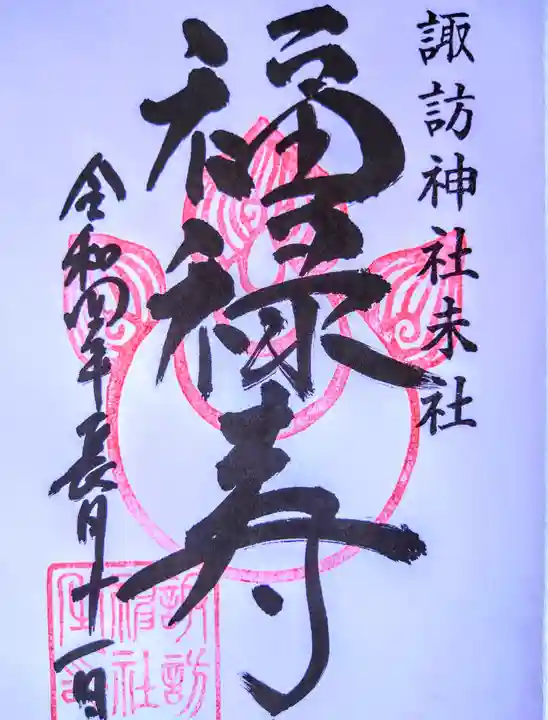 諏訪神社末社
福禄寿
令和四年長月十一日
諏訪
神社